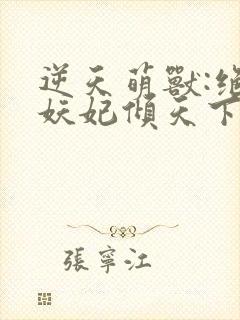 逆天萌獸:絕
妖妃傾天下
張寧江